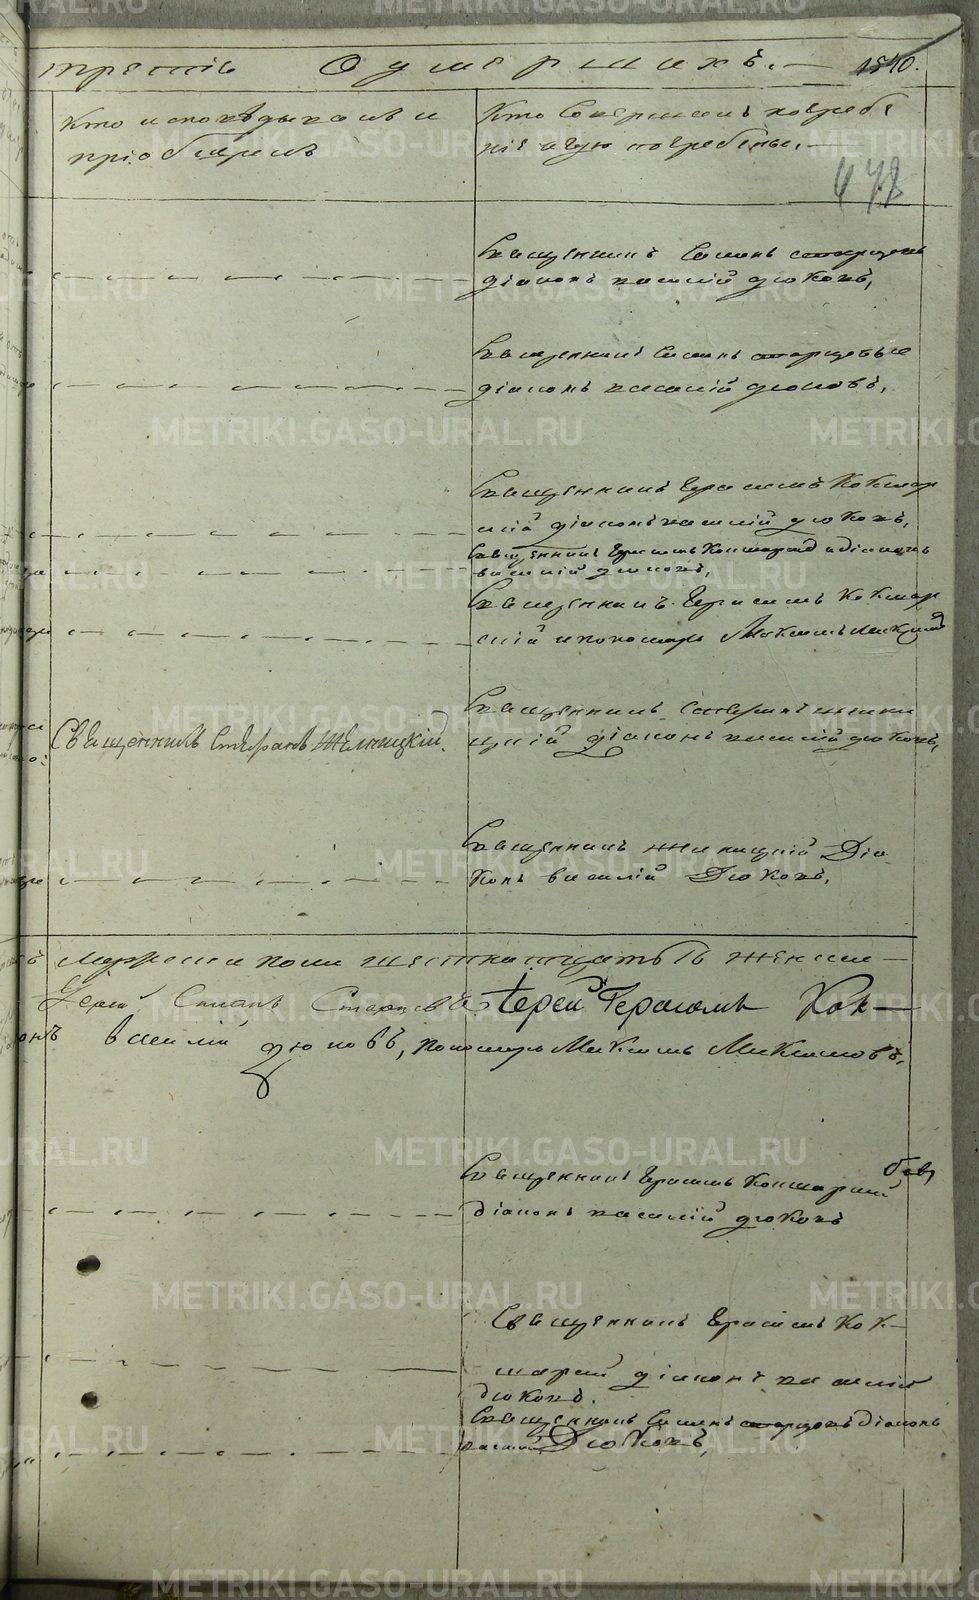 третiя О умершихъ. 1840.
Кто исповѣдывалъ и
прiобщалъ
Кто Совершалъ погребе
нiе и гдѣ погребены.
478
Священникъ Симонъ Старцовъ
дiаконъ василiй дюковъ,
Священникъ Симонъ старцовъ и
дiаконъ василiй дюковъ,
Священникъ Герасимъ Кокшар
скiй дiаконъ василiй дюковъ,
Священникъ Герасимъ Кокшарскiй и дiаконъ
василiй дюковъ,
Священникъ Герасимъ Кокшар
скiй и пономарь Максимъ
Священникъ Стефанъ Желницкiй.
Священникъ Стефанъ желни
цкiй дiаконъ василiй дюковъ,
Священникъ желницкiй Дiа
конъ василiй Дюковъ,
мужеска пола женска
Симонъ Старцовъ Iерей Герасимъ Кок-
василiй дюковъ, пономарь Максимъ
Священникъ Герасимъ Кокшарскiй
дiаконъ василiй дюковъ
Священникъ Герасимъ Кок-
шарскiй дiаконъ василiй
дюковъ.
Священникъ Симонъ старцовъ дiаконъ
василiй Дюковъ,
METRIKI.GASO-URAL.RU